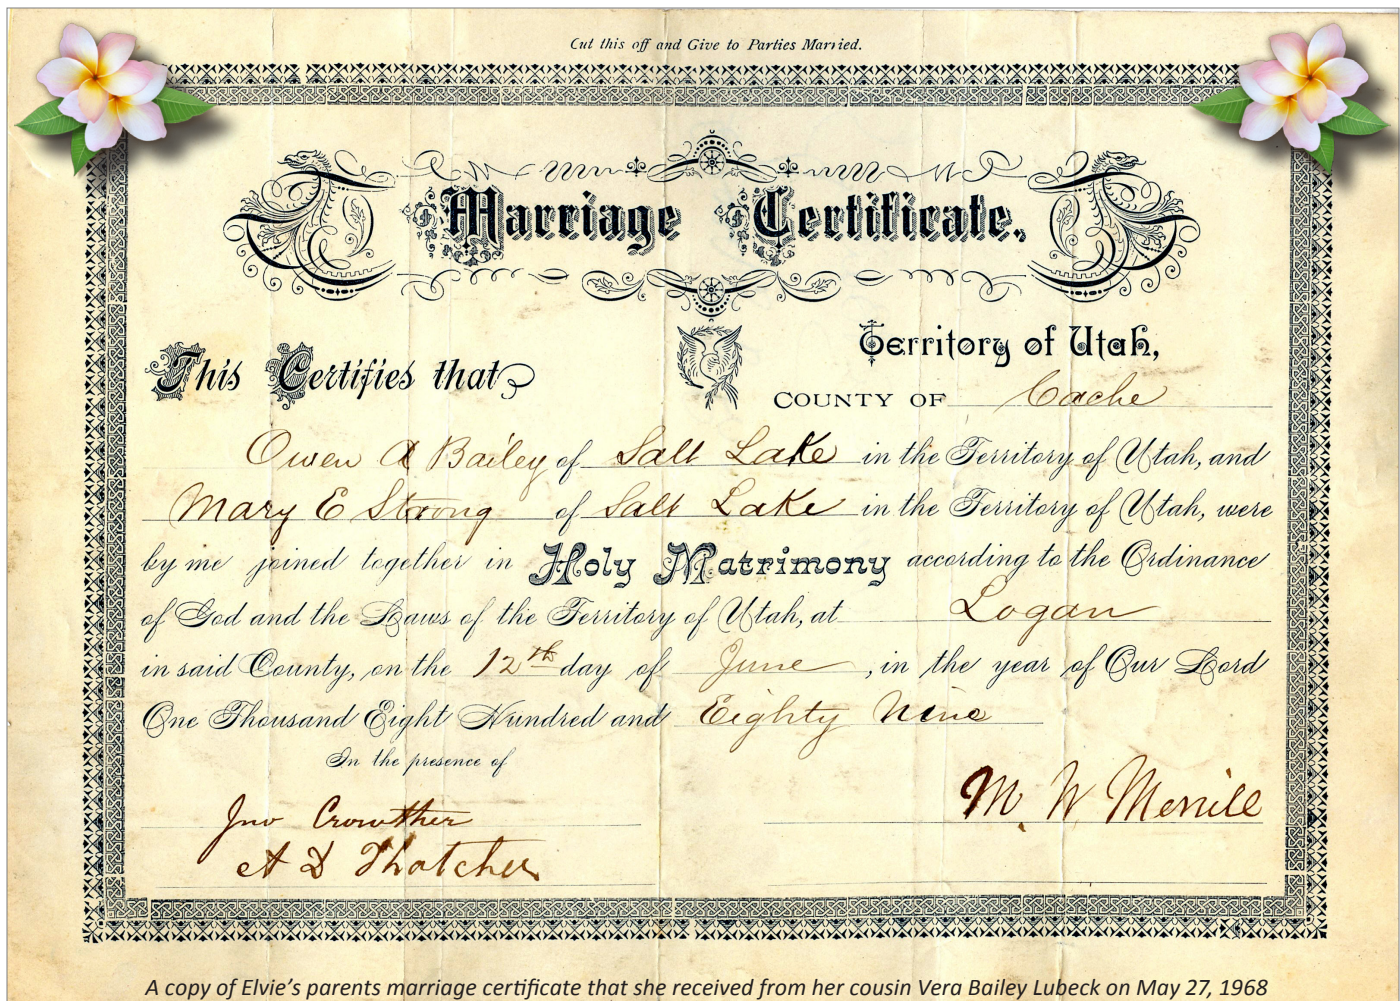 Cut this off and Give to Parties Married.
Marriage Certificate.
Territory of Utah,
This Certifies that
COUNTY OF Cache
Owen A Bailey of Salt Lake in the Territory of Utah, and
Mary E Strong of Salt Lake in the Territory of Utah, were
by me joined together in Holy Matrimony according to the Ordinance
of God and the Laws of the Territory of Utah, at Logan
in said County, on the 12th day of June, in the year of Our Lord
One Thousand Eight Hundred and Eighty Nine
In the presence of
M. W. Merrill
Jno Crowther
A D Thatcher
A copy of Elvie’s parents marriage certificate that she received from her cousin Vera Bailey Lubeck on May 27, 1968